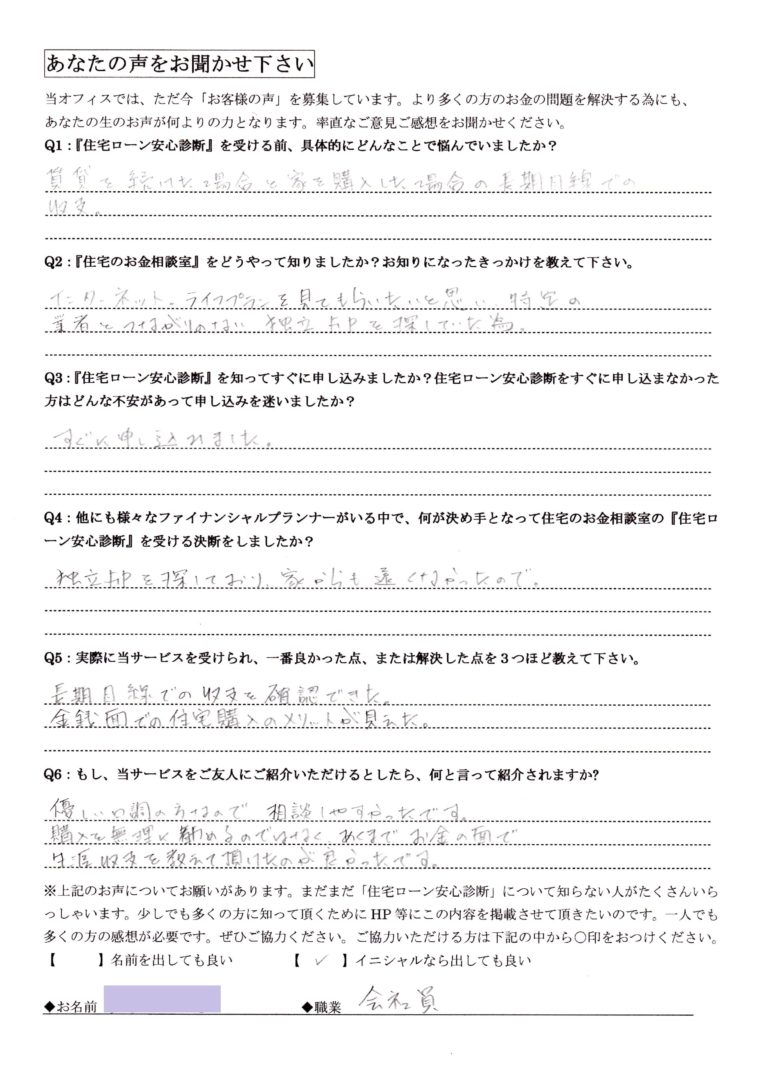 あなたの声をお聞かせ下さい
当オフィスでは、ただ今「お客様の声」を募集しています。より多くの方のお金の問題を解決する為にも、
あなたの生のお声が何よりの力となります。率直なご意見ご感想をお聞かせください。
Q1：『住宅ローン安心診断』を受ける前、具体的にどんなことで悩んでいましたか？
賃貸を続けた場合と家を購入した場合の長期目線での
収支。
Q2：『住宅のお金相談室』をどうやって知りましたか？お知りになったきっかけを教えて下さい。
インターネット。ライフプランを見てもらいたいと思い、特定の
業者とつながりのない独立FPを探していた為。
Q3：『住宅ローン安心診断』を知ってすぐに申し込みましたか？住宅ローン安心診断をすぐに申し込まなかった
方はどんな不安があって申し込みを迷いましたか？
すぐに申し込みました。
Q4：他にも様々なファイナンシャルプランナーがいる中で、何が決め手となって住宅のお金相談室の『住宅ロ
ーン安心診断』を受ける決断をしましたか？
独立FPを探しており、家からも遠くなかったので。
Q5：実際に当サービスを受けられ、一番良かった点、または解決した点を３つほど教えて下さい。
長期目線での収支を確認できた。
金銭面での住宅購入のメリットが見えた。
Q6：もし、当サービスをご友人にご紹介いただけるとしたら、何と言って紹介されますか?
優しい口調の方なので相談しやすかったです。
購入を無理に勧めるのではなく、あくまでお金の面で
生涯収支を教えて頂けたのが良かったです。
※上記のお声についてお願いがあります。まだまだ「住宅ローン安心診断」について知らない人がたくさんいら
っしゃいます。少しでも多くの方に知って頂くためにHP等にこの内容を掲載させて頂きたいのです。一人でも
多くの方の感想が必要です。ぜひご協力ください。ご協力いただける方は下記の中から〇印をおつけください。
【　　】名前を出しても良い　　【 ✓ 】イニシャルなら出しても良い
◆お名前　　◆職業 会社員